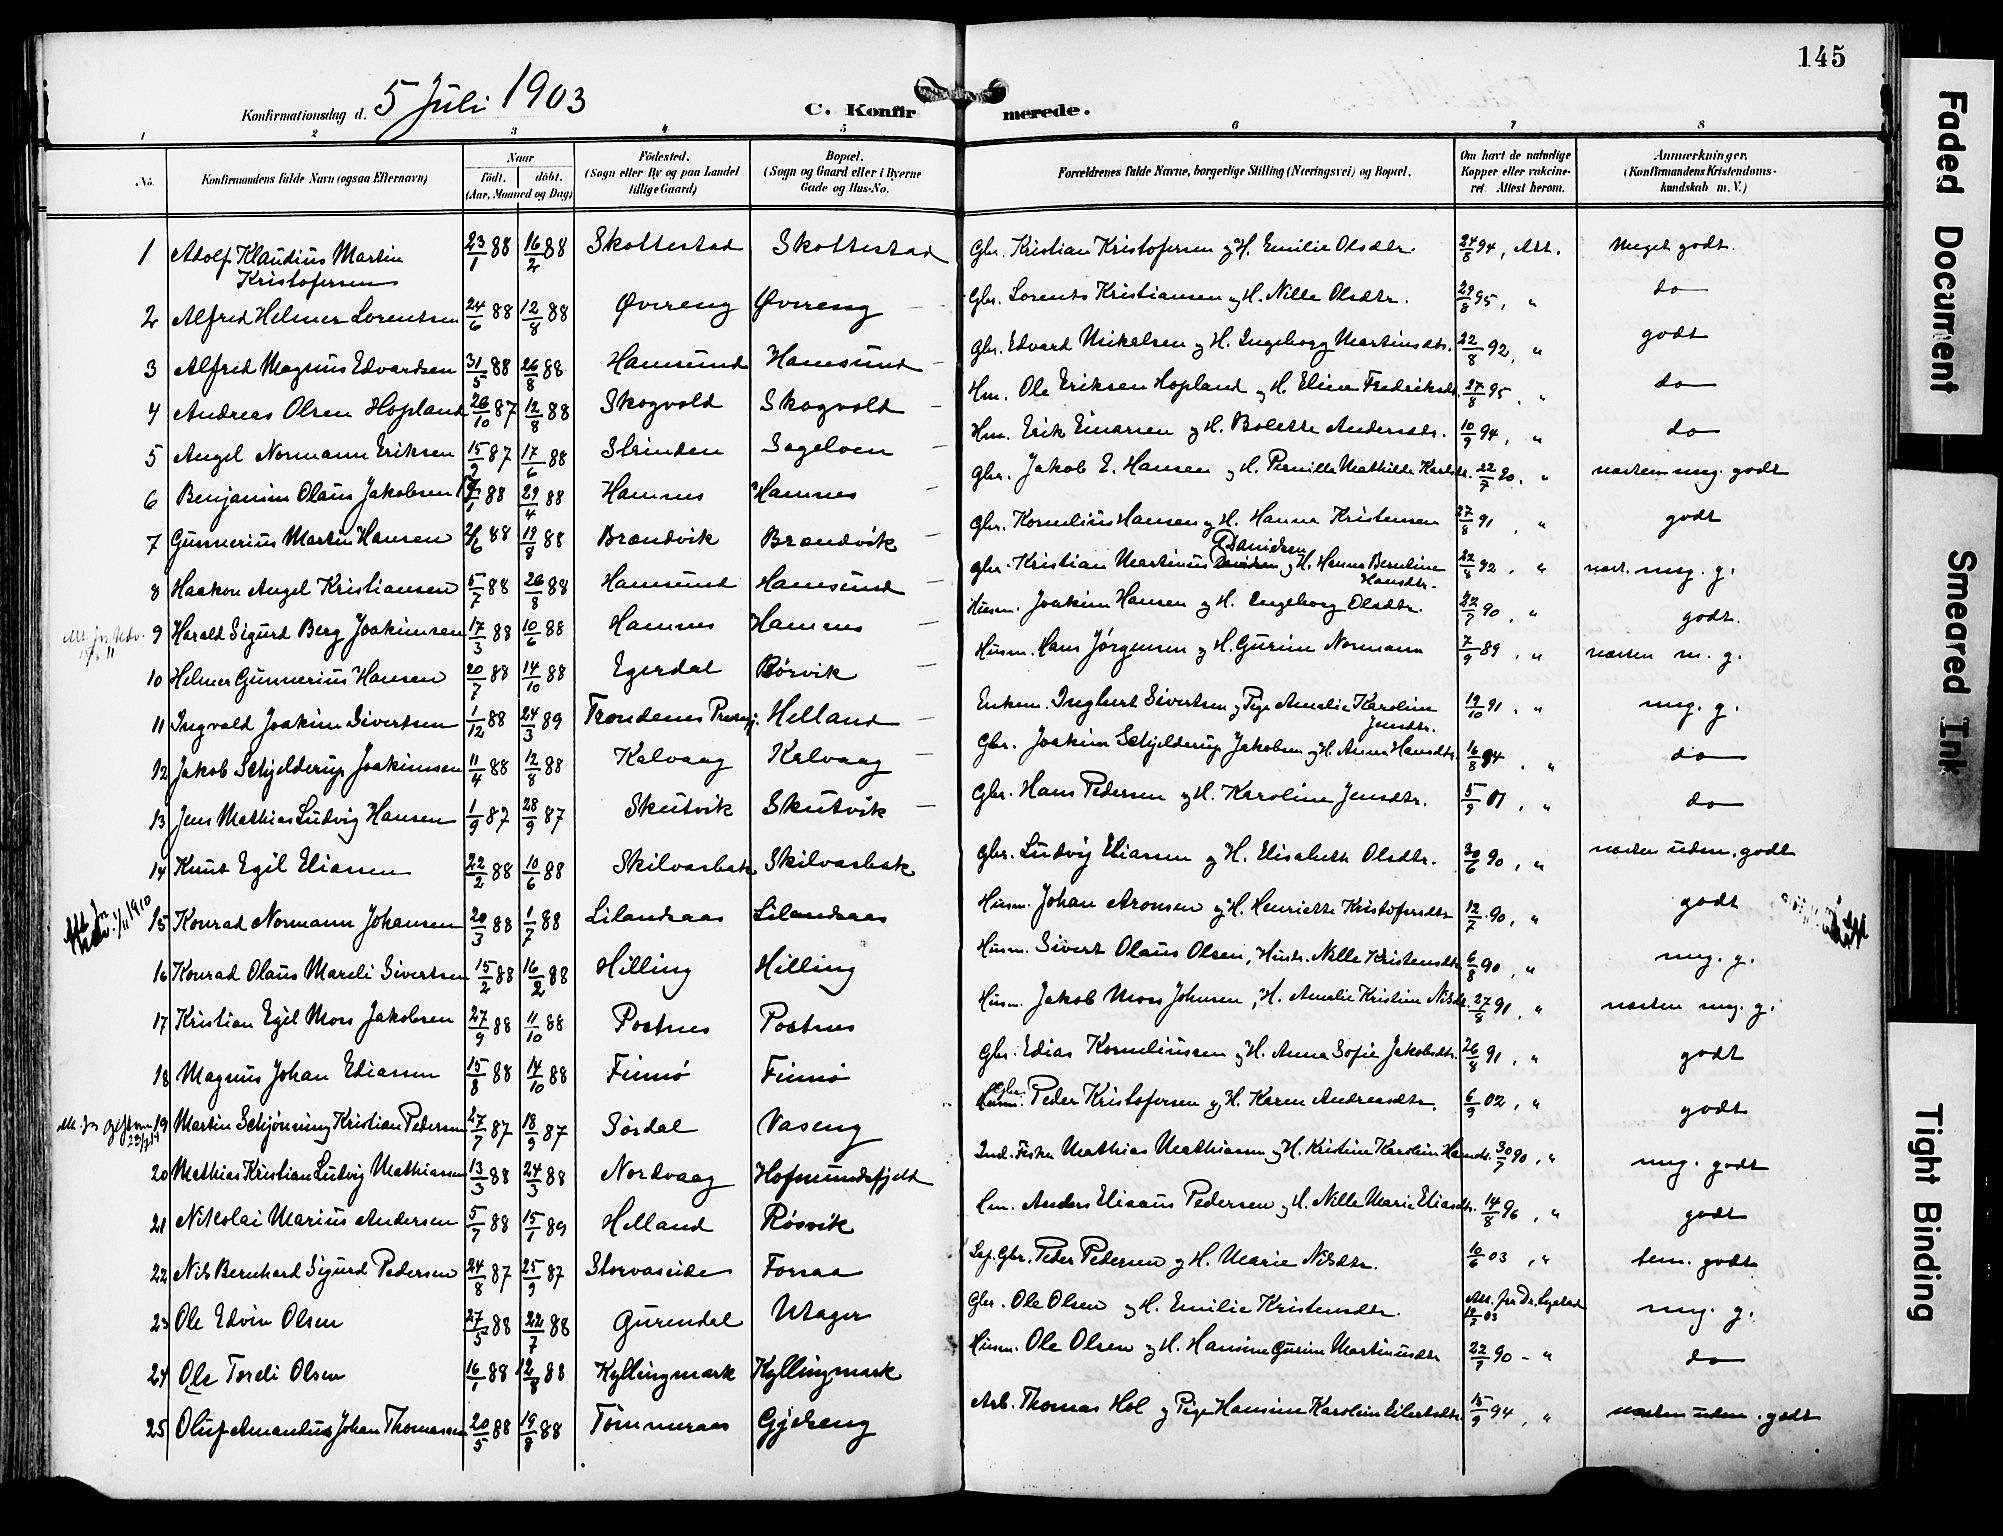 145
Konfirmationsdag d. 5 Juli 1903
C. Konfirmerede.
1 2 3 4 5 6 7 8
No.
Konfirmandens fulde Navn (ogsaa Efternavn)
Naar
födt. döbt.
(Aar, Maaned og Dag)
Födested.
(Sogn eller By og paa Landet
tillige Gaard)
Bopæl.
(Sogn og Gaard eller i Byerne
Gade og Hus-No.
Forældrenes fulde Navne, borgerlige Stilling (Næringsvei) og Bopæl.
Om havt de naturlige
Kopper eller vakcine-
ret. Attest herom.
Anmærkninger.
(Konfirmandens Kristendoms-
kundskab m. V.)
1 Adolf Klaudius Martin Kristofersen 23/1 88 16/2 88 Skottestad Skottestad Gbr. Kristian Kristofersen og H. Emilie Olsdtr. 24/8 94, Att. meget godt.
2 Alfred Helmer Lorentsen 24/6 88 12/8 88 Øvereng Øvereng Gbr. Lorents Kristiansen og H. Nille Olsdtr. 29/8 95, " do
3 Alfred Magnus Edvardsen 31/5 88 26/8 88 Hamsund Hamsund Gbr. Edvard Mikelsen og H. Ingeborg Martinsdtr. 22/8 92, " godt
4 Andreas Olsen Hopland 26/10 87 12/8 88 Skogvold Skogvold Hm. Ole Eriksen Hopland og H. Elina Fredriksdtr. 27/8 95, " do
5 Angel Normann Eriksen 15/9 87 17/6 88 Strinden Sagelven Hm. Erik Einarsen og H. Bolette Andersdtr. 10/9 94, " do
6 Benjamin Olaus Jakobsen 88 29/4 88 Hamnes Hamnes Gbr. Jakob E. Hansen og H. Pernille Mathilde Karlsdtr. 22/7 90, " næsten mg. godt
7 Gunnerius Martin Hansen 2/6 88 19/8 88 Brændvik Brændvik Gbr. Kornelius Hansen og H. Hanna Kristensen 27/8 91, " godt
8 Haakon Angel Kristiansen 5/7 88 26/8 88 Hamsund Hamsund Gbr. Kristian Martinus Danielsen og H. Hanna Berntine Hansdtr. 22/8 92, " næst. mg. g.
9 Harald Sigurd Berg Joakimsen 17/3 88 10/6 88 Hamnes Hamnes Husm. Joakim Hansen og H. Ingeborg Olsdtr. 22/7 90, " godt.
10 Helmer Gunnerius Hansen 20/7 88 14/10 88 Egerdal Børvik Husm. Hans Jørgensen og H. Gurine Normann 7/9 89, " næsten m. g.
11 Ingvald Joakim Sivertsen 1/12 88 24/3 89 Trondenes Præstegj. Helland Enkem. Ingbert Sivertsen og Pige Amalie Karoline Jensdtr. 19/10 91, " mg. g.
12 Jakob Schjelderup Joakimsen 11/4 88 12/8 88 Kalvaag Kalvaag Gbr. Joakim Schjelderup Jakobsen og H. Anna Hansdtr. 16/8 94, " do
13 Jens Mathias Ludvig Hansen 1/9 87 28/9 87 Skutvik Skutvik Gbr. Hans Pedersen og H. Karoline Jensdtr. 5/9 01, " do
14 Knut Egil Eliassen 22/2 88 10/6 88 Skilvasbak Skilvasbak Gbr. Ludvig Eliassen og H. Elisabeth Olsdtr. 30/6 90, " næsten udm. godt
15 Konrad Normann Johansen 20/3 88 1/7 88 Lilandsaas Lilandsaas Husm. Johan Aronsen og H. Henriette Kristofersdtr. 12/7 90, " godt
16 Konrad Olaus Mareli Sivertsen 15/2 88 16/2 88 Hilling Hilling Husm. Sivert Olaus Olsen, Hustr. Nille Kristensdtr. 6/8 90, " mg. g.
17 Kristian Egil Mors Jakobsen 27/9 88 11/10 88 Postnes Postnes Husm. Jakob Mors Johnsen, H. Amalie Kristine Nilsdtr. 27/8 91, " næsten mg. g.
18 Magnus Johan Ediassen 15/8 88 14/10 88 Finnø Finnø Gbr. Edias Korneliussen og H. Anna Sofie Jakobsdtr. 26/8 91, " godt
19 Martin Schjønning Kristian Pedersen 27/7 87 18/9 87 Sørdal Vaseng Gbr. Peder Kristofersen og H. Karen Andreasdtr. 6/9 02, " godt
20 Mathias Kristian Ludvig Mathiassen 13/3 88 24/3 88 Nordvaag Hofmundsfjeld Ind. Fisker Mathias Mathiassen og H. Kristine Karoline Hansdtr. 30/7 90, " mg. godt
21 Nikolai Marius Andersen 5/7 88 15/1 89 Helland Røsvik Hm. Anders Elisæus Pedersen og H. Nille Marie Eliasdtr. 14/8 96, " godt
22 Nils Bernhard Sigurd Pedersen 24/8 87 25/9 87 Storvaseide Forsaa Gbr. Peder Pedersen og H. Marie Nilsdtr. 10/6 03, " tem. godt
23 Ole Edvin Olsen 27/5 88 22/7 88 Gurendal Gbr. Ole Olsen og H. Emilie Kristensdtr. Att. fra Dr. mg. g.
24 Ole Toreli Olsen 16/1 88 12/8 88 Kyllingmark Kyllingmark Husm. Ole Olsen og H. Hansine Gurine Martinusdtr 22/7 90 - " do
25 Oluf Amandus Johan Thomassen 20/5 88 19/8 88 Tømmeraas Gjæreng Arb. Thomas Hol og Pige Hansine Karoline Eilertsdtr. 15/9 94, " næsten udm. godt
Faded Document
Smeared Ink
Tight Binding